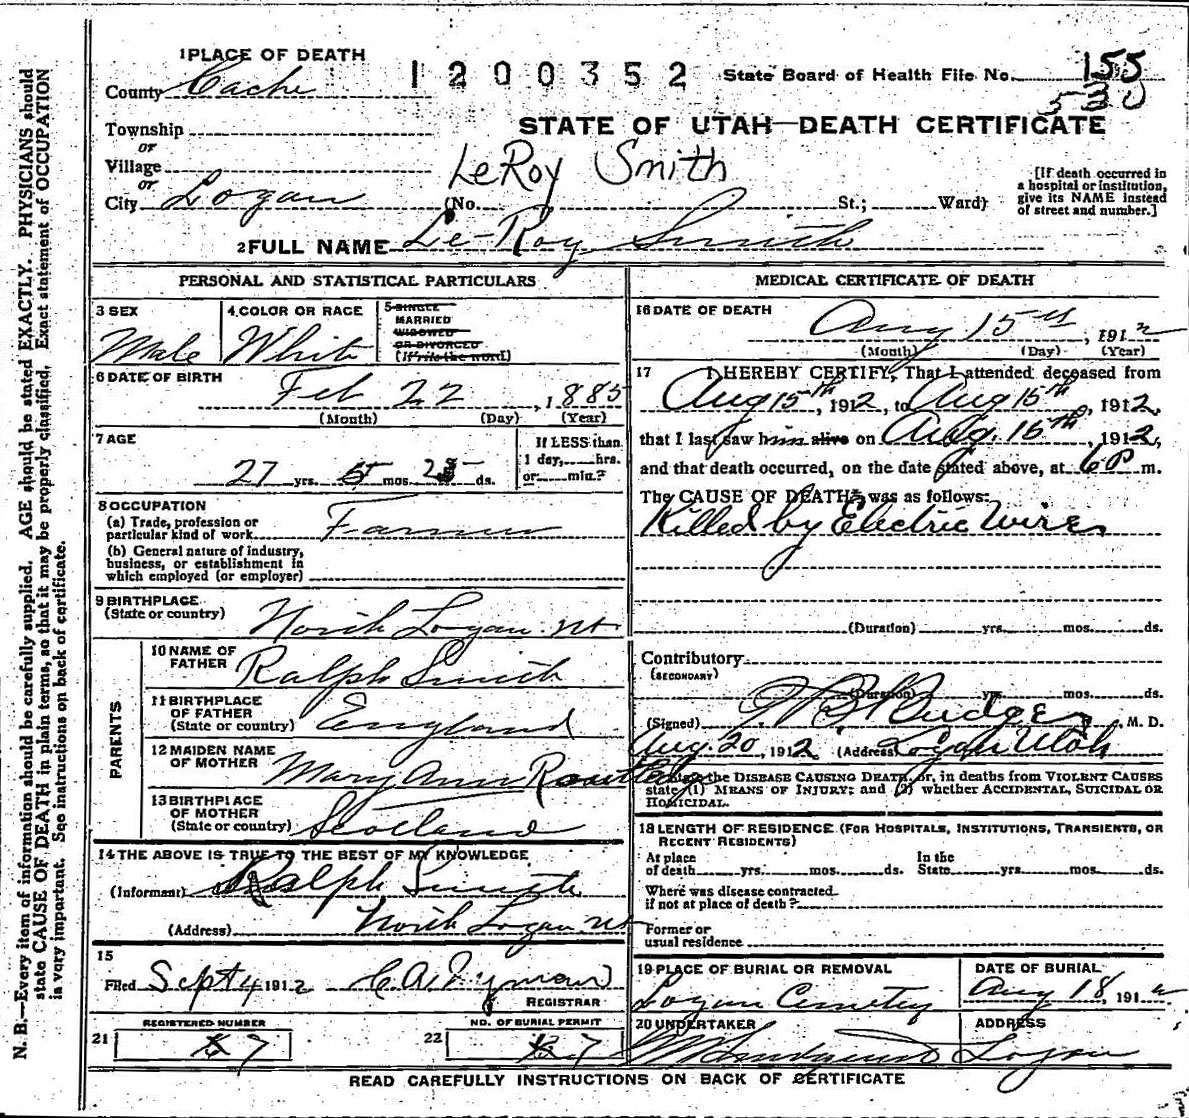 1 PLACE OF DEATH
County Cache
1200352
State Board of Health File No. 155
530
STATE OF UTAH—DEATH CERTIFICATE
Township
or
Village
or
City Logan (No. St.; Ward)
LeRoy Smith
[If death occurred in
a hospital or institution,
give its NAME instead
of street and number.]
2 FULL NAME Le-Roy Smith
PERSONAL AND STATISTICAL PARTICULARS
3 SEX
Male
4 COLOR OR RACE
White
5 SINGLE
MARRIED
WIDOWED
OR DIVORCED
(Write the word)
6 DATE OF BIRTH
Feb 22, 1885
(Month) (Day) (Year)
7 AGE
27 yrs. 5 mos. ds.
If LESS than
1 day, hrs.
or min.?
8 OCCUPATION
(a) Trade, profession or
particular kind of work Farmer
(b) General nature of industry,
business, or establishment in
which employed (or employer)
9 BIRTHPLACE
(State or country) North Logan Ut
PARENTS
10 NAME OF
FATHER Ralph Smith
11 BIRTHPLACE
OF FATHER
(State or country) England
12 MAIDEN NAME
OF MOTHER Mary Ann
13 BIRTHPLACE
OF MOTHER
(State or country) Scotland
14 THE ABOVE IS TRUE TO THE BEST OF MY KNOWLEDGE
(Informant) Ralph Smith
(Address) North Logan Ut
15
Filed Sept 4 1912
REGISTRAR
REGISTERED NUMBER
21 7
NO. OF BURIAL PERMIT
22 7
MEDICAL CERTIFICATE OF DEATH
16 DATE OF DEATH
Aug 15th, 1912
(Month) (Day) (Year)
17 I HEREBY CERTIFY, That I attended deceased from
Aug 15th, 1912, to Aug 15th, 1912,
that I last saw him alive on Aug. 15th, 1912,
and that death occurred, on the date stated above, at 6 P m.
The CAUSE OF DEATH* was as follows:
Killed by Electric Wires
(Duration) yrs. mos. ds.
Contributory
(SECONDARY)
(Duration) yrs. mos. ds.
(Signed) Budge, M. D.
Aug. 20, 1912 (Address) Logan Utah
State the DISEASE CAUSING DEATH, or, in deaths from VIOLENT CAUSES
state (1) MEANS OF INJURY; and (2) whether ACCIDENTAL, SUICIDAL OR
HOMICIDAL.
18 LENGTH OF RESIDENCE (FOR HOSPITALS, INSTITUTIONS, TRANSIENTS, OR
RECENT RESIDENTS)
At place
of death yrs. mos. ds.
In the
State yrs. mos. ds.
Where was disease contracted
if not at place of death?
Former or
usual residence
19 PLACE OF BURIAL OR REMOVAL
Logan Cemetery
DATE OF BURIAL
Aug 18, 1912
20 UNDERTAKER
ADDRESS
Logan
READ CAREFULLY INSTRUCTIONS ON BACK OF CERTIFICATE
N. B.—Every item of information should be carefully supplied. AGE should be stated EXACTLY. PHYSICIANS should
state CAUSE OF DEATH in plain terms, so that it may be properly classified. Exact statement of OCCUPATION
is very important. See instructions on back of certificate.